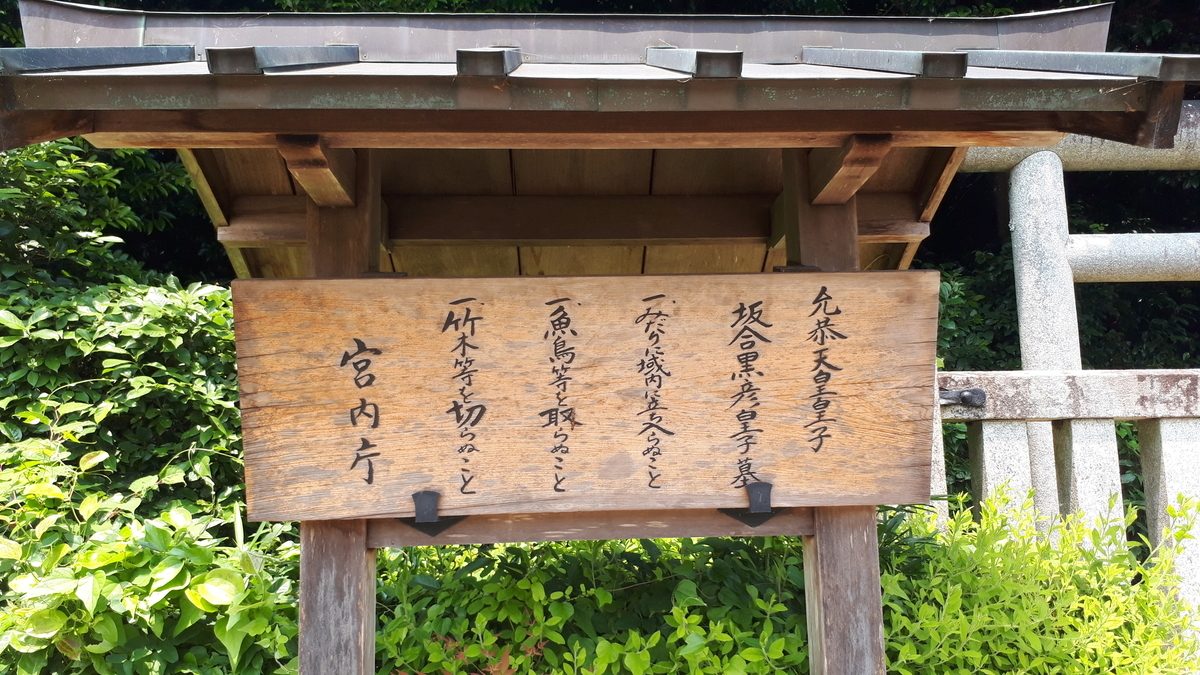 允恭天皇皇子
坂合黒彦皇子墓
一、みだりに域内に立ち入らぬこと
一、魚鳥等を取らぬこと
一、竹木等を切らぬこと
宮内庁